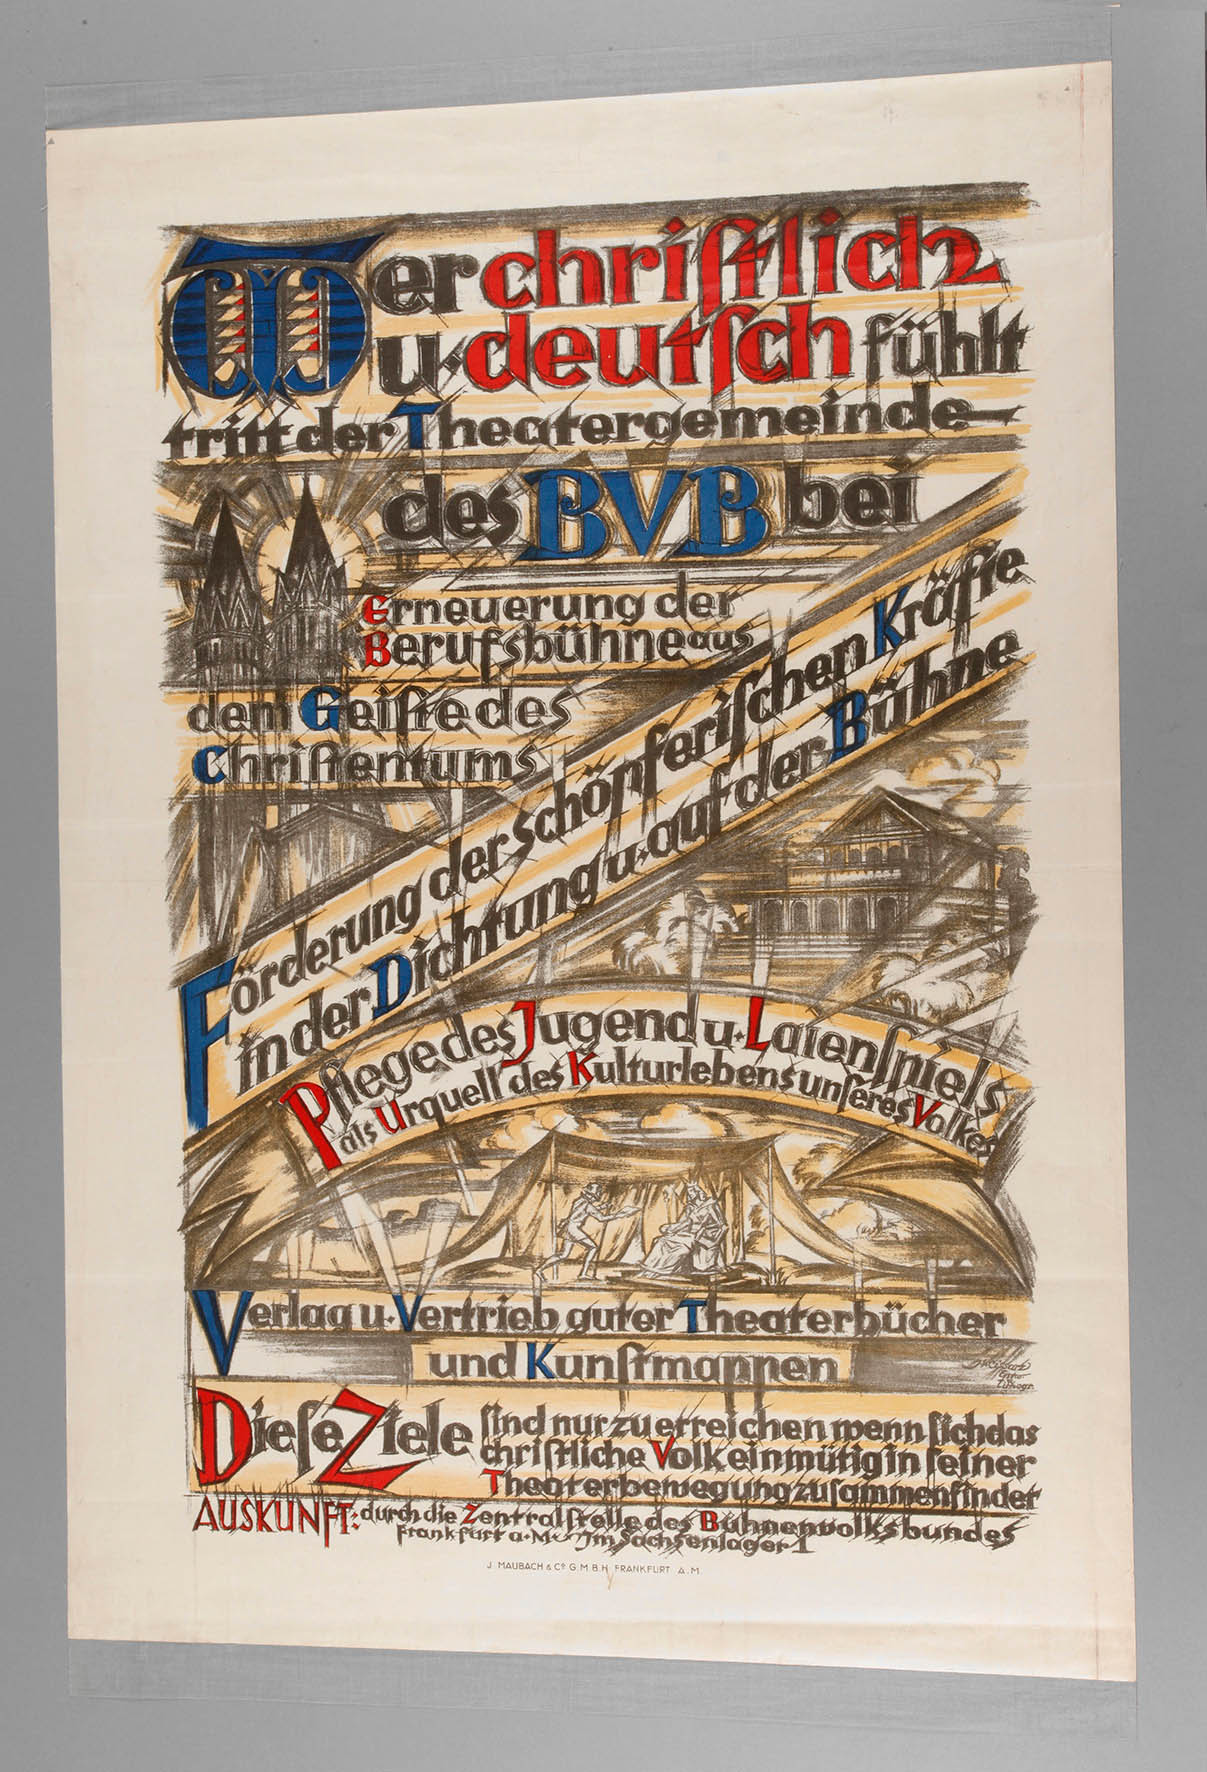 Wer christlich
u. deutsch fühlt
tritt der Theatergemeinde
des BVB bei
Erneuerung der
Berufsbühne aus
dem Geiste des
Christentums
Förderung der schöpferischen Kräfte
in der Dichtung u. auf der Bühne
Pflege des Jugend u. Laienspiels
als Urquell des Kulturlebens unseres Volkes
Verlag u. Vertrieb guter Theaterbücher
und Kunstmappen
Diese Ziele sind nur zu erreichen wenn sich das
christliche Volk einmütig in seiner
Theaterbewegung zusammenfindet
AUSKUNFT: durch die Zentralstelle des Bühnenvolksbundes
Frankfurt a. M. Im Sachsenlager 1
J. MAUBACH & Co G.M.B.H. FRANKFURT A.M.